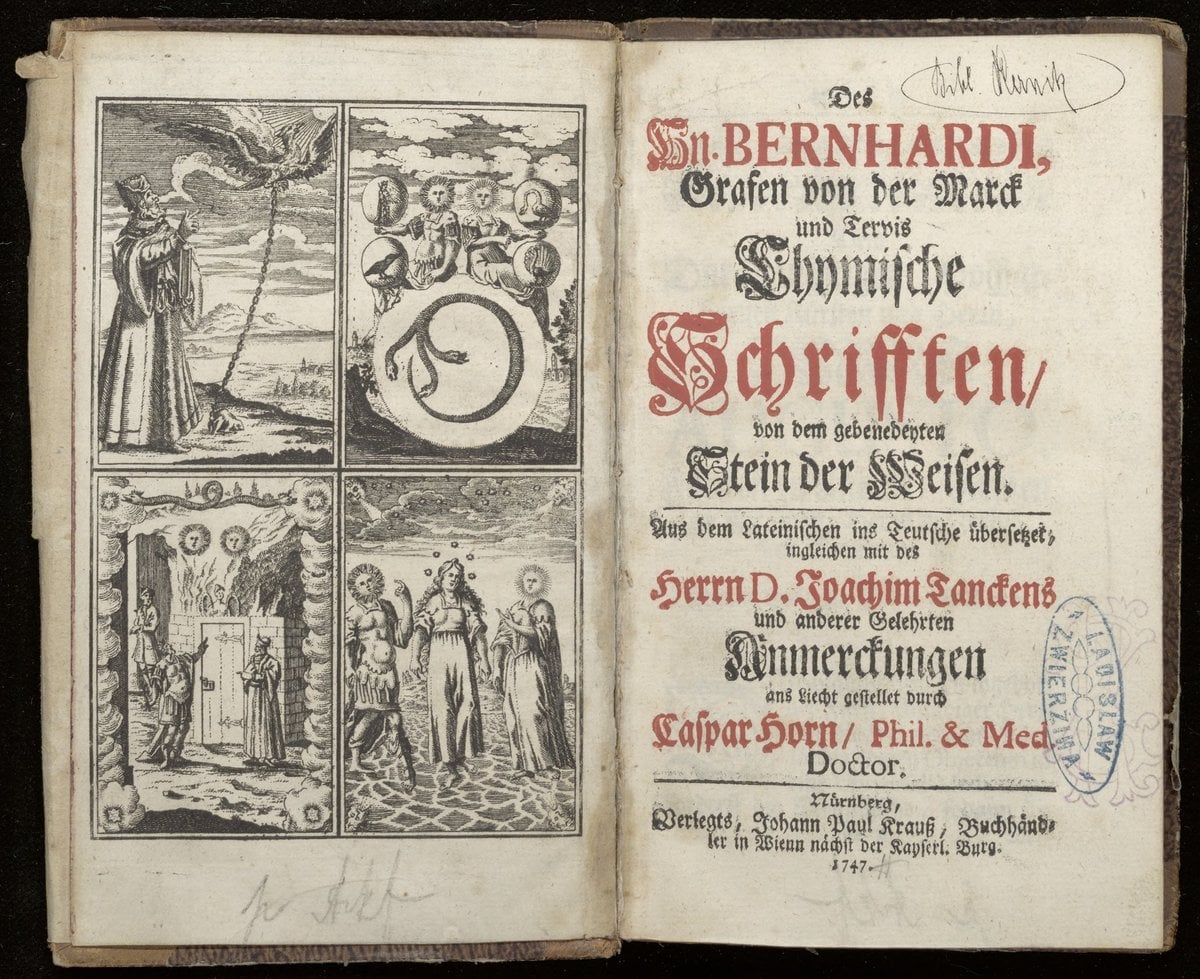 Des
Hn. BERNHARDI,
Grafen von der Marck
und Tervis
Chymische
Schrifften/
von dem gebenedeyten
Stein der Weisen.
Aus dem Lateinischen ins Teutsche übersetzet,
ingleichen mit des
Herrn D. Joachim Tanckens
und anderer Gelehrten
Anmerckungen
ans Liecht gestellet durch
Caspar Horn/ Phil. & Med.
Doctor.
LADISLAW
ZWIERZINA
Nürnberg,
Verlegts, Johann Paul Krauß, Buchhänd-
ler in Wienn nächst der Kayserl. Burg.
1747.